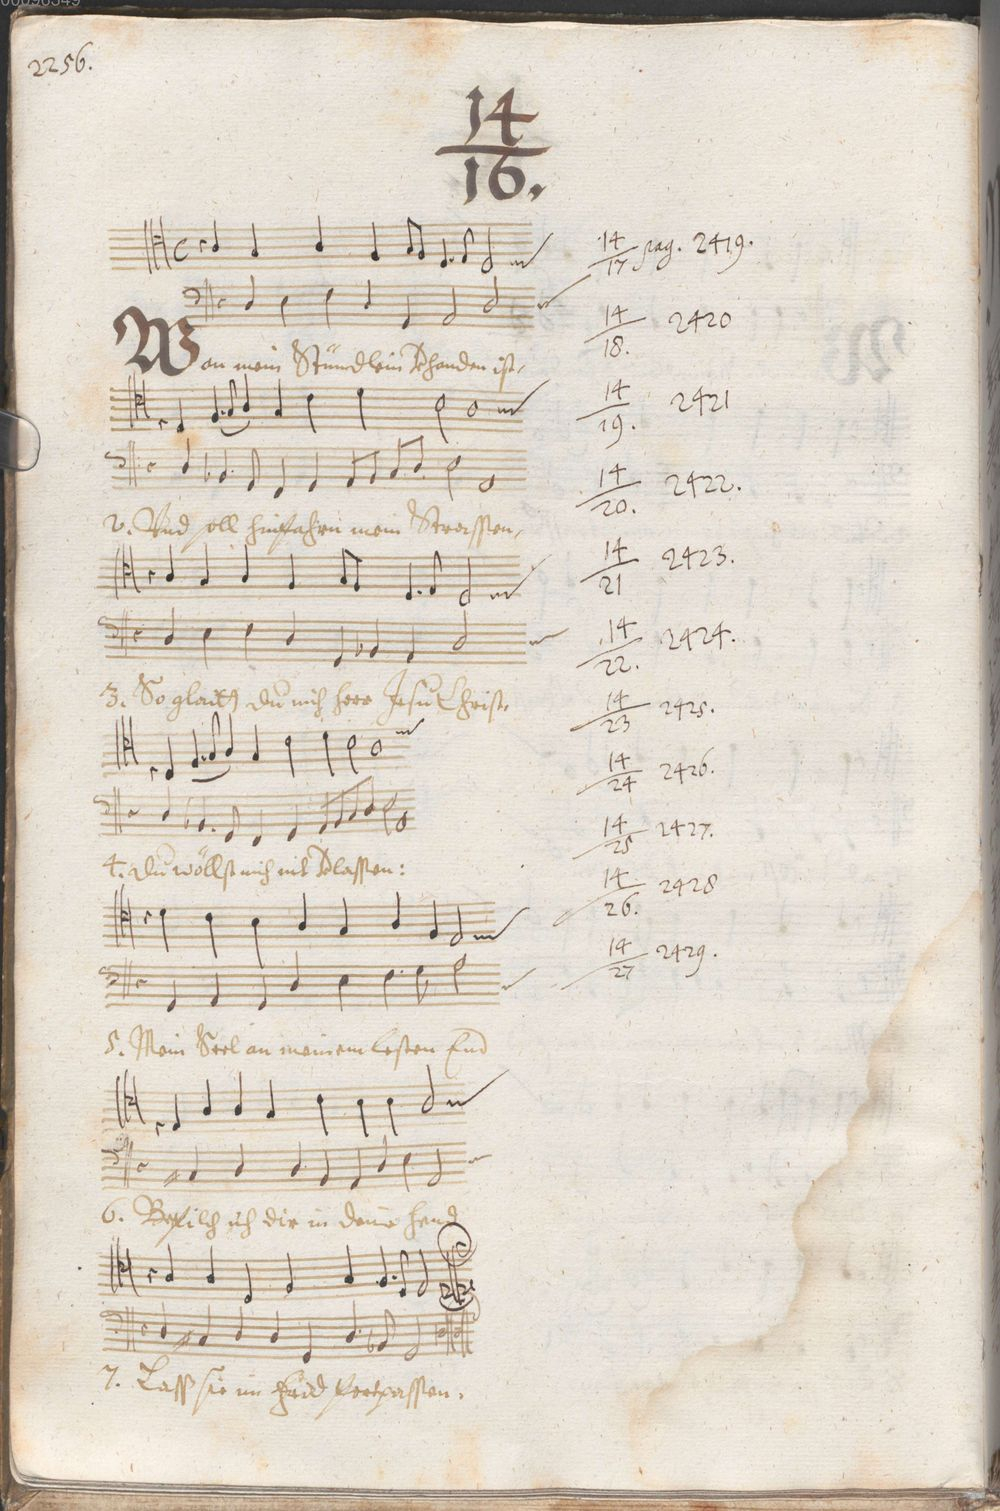 00098549
2256.
14
16.
Wan mein Stündlein Vhanden ist,
2. Und soll hinfahrn mein Strassen,
3. So glaitt du mich herr Jesu Christ,
4. Du wöllst mich nit Vlassen:
5. Mein Seel an meinem lesten End
6. Befilch ich dir in deine hend
7. Lass sie im frid
14
17 pag. 2419.
14
18. 2420
14
19. 2421
14
20. 2422.
14
21 2423.
14
22. 2424.
14
23 2425.
14
24 2426.
14
25 2427.
14
26. 2428
14
27 2429.